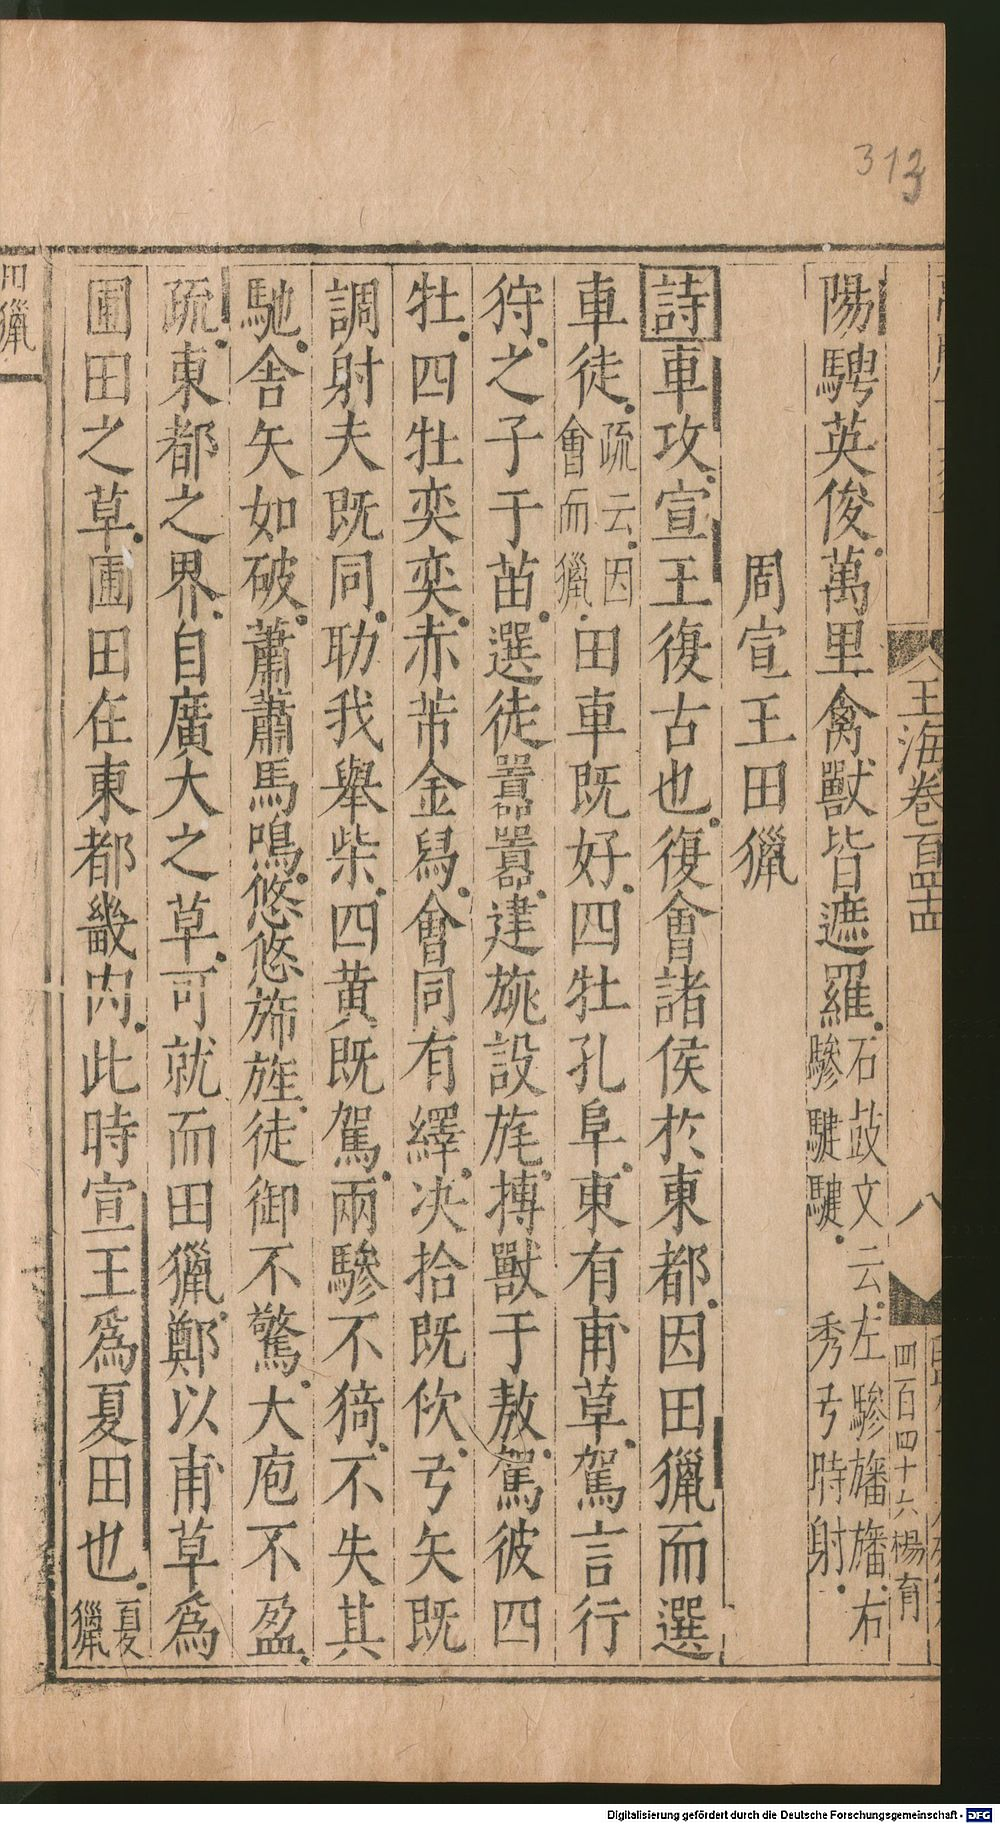 313
玉海卷百四十四
八
四百四十六楊育
陽騁英俊萬里禽獸皆遮羅石鼓文云左驂旛旛右
驂騝騝 秀弓時射
周宣王田獵
詩車攻宣王復古也復會諸侯於東都因田獵而選
車徒疏云因
會而獵田車既好四牡孔阜東有甫草駕言行
狩之子于苗選徒囂囂建旐設旄搏獸于敖駕彼四
牡四牡奕奕赤芾金舄會同有繹决拾既佽弓矢既
調射夫既同助我舉柴四黃既駕兩驂不猗不失其
馳舍矢如破蕭蕭馬鳴悠悠旆旌徒御不驚大庖不盈
疏東都之界自廣大之草可就而田獵鄭以甫草爲
圃田之草圃田在東都畿内此時宣王爲夏田也夏
獵
田獵
Digitalisierung gefördert durch die Deutsche Forschungsgemeinschaft - DFG